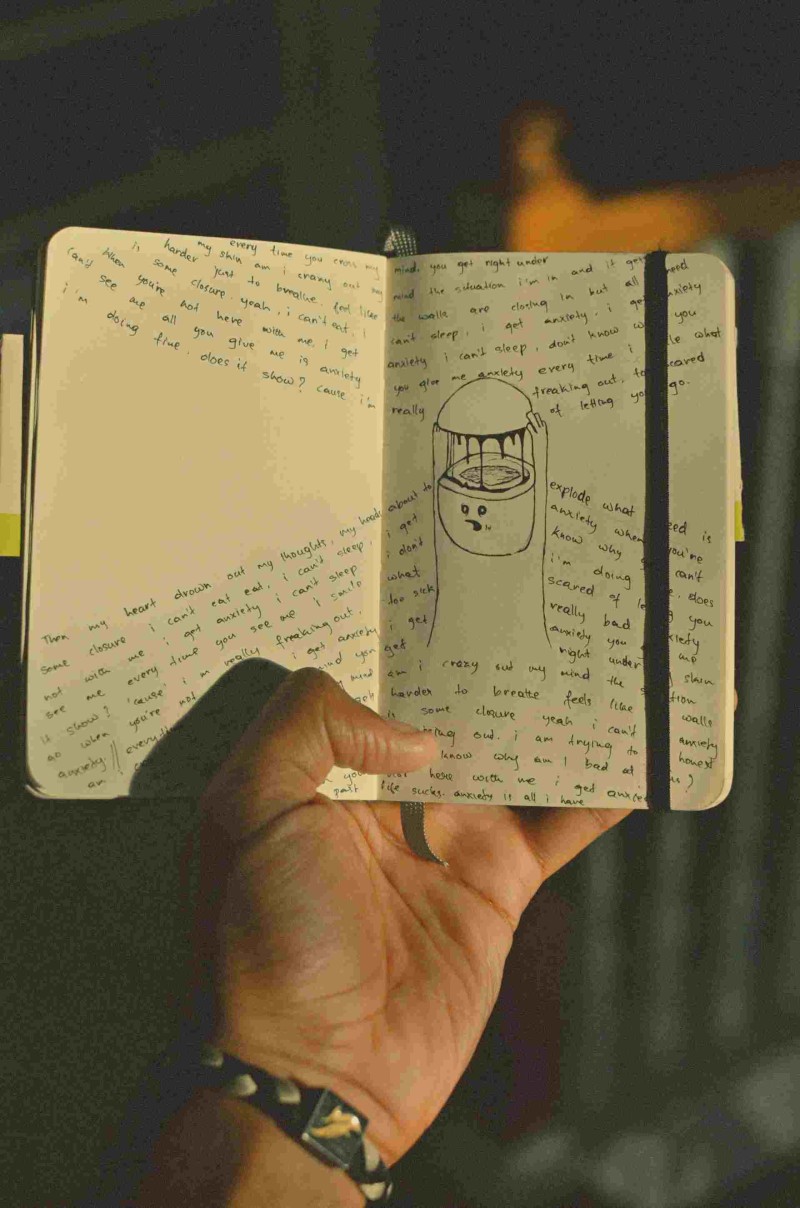 is harder my skin every time you cross my
can't when some just to breathe. am i crazy out my
see you're closure. yeah, i can't eat. feel like
i'm me not here with me. i get
doing all you give me is anxiety
fine. does it show? cause i'm
Then my heart drown out my thoughts, my heads
some closure i can't eat eat, i can't sleep,
not with me i get anxiety i can't sleep
see me every time you see me i smile
it show? 'cause i'm really freaking out,
go when you're not i get anxiety
anxiety everyth mind you
am
you
past
mind, you get right under
mind the situation i'm in and it gets need
the walls are closing in but all
can't sleep, i get anxiety. i get anxiety
anxiety i can't sleep, don't know you
you give me anxiety every time i what
really freaking out, scared
of letting go.
about to explode what
i get anxiety when is
i don't know why you're
what i'm doing can't
too sick scared of does
i get really bad you
get anxiety you
right under me
am i crazy out my mind the skin
harder to breathe feels like
is some closure yeah i can't walls
out. i am trying to anxiety
know why am i bad at honest
here with me i get
life sucks. anxiety is all i have